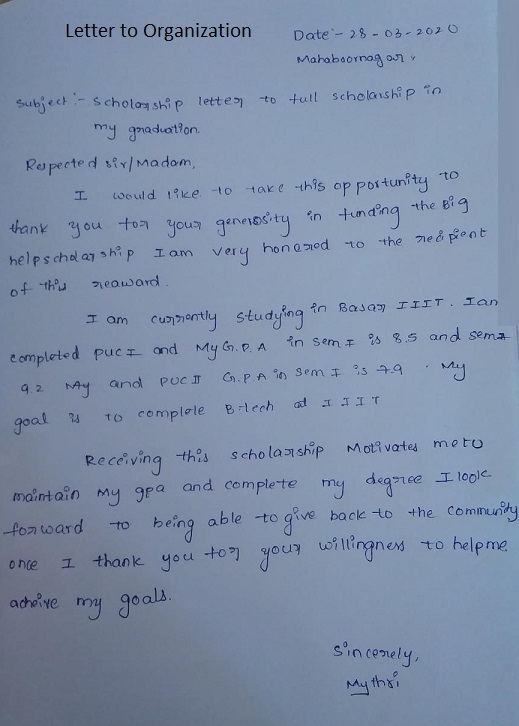 Letter to Organization
Date:- 28-03-2020
Mahaboornagar,
Subject:- Scholarship letter to full scholarship in
my graduation.
Respected sir/Madam,
I would like to take this opportunity to
thank you for your generosity in funding the Big
helpscholarship I am very honored to the recipient
of this reaward.
I am currently studying in Basar IIIT. Ian
completed PUC I and My G.P.A in sem I is 8.5 and sem
9.2 My and PUC II G.P.A in Sem I is 7.9 . My
goal is to complete B-tech at IIIT
Receiving this scholarship Motivates me to
maintain My gpa and complete my degree I look
forward to being able to give back to the community
once I thank you for your willingness to help me
acheive my goals.
Sincerely,
Mythri